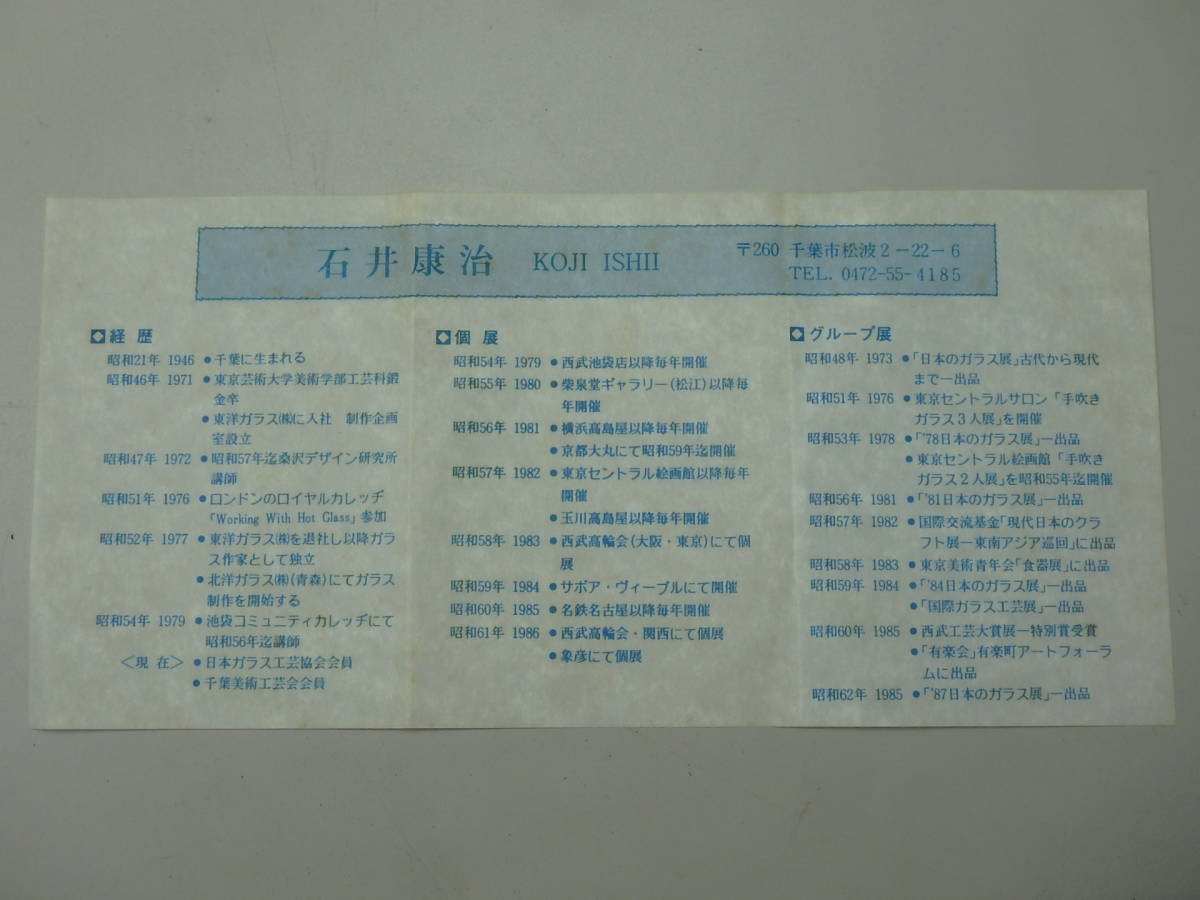 石井康治 KOJI ISHII
〒260 千葉市松波2-22-6
TEL. 0472-55-4185
経歴
昭和21年 1946 ●千葉に生まれる
昭和46年 1971 ●東京芸術大学美術学部工芸科鍛
金卒
●東洋ガラス㈱に入社 制作企画
室設立
昭和47年 1972 ●昭和57年迄桑沢デザイン研究所
講師
昭和51年 1976 ●ロンドンのロイヤルカレッヂ
「Working With Hot Glass」参加
昭和52年 1977 ●東洋ガラス㈱を退社し以降ガラ
ス作家として独立
●北洋ガラス㈱(青森)にてガラス
制作を開始する
昭和54年 1979 ●池袋コミュニティカレッヂにて
昭和56年迄講師
〈現在〉 ●日本ガラス工芸協会会員
●千葉美術工芸会会員
個展
昭和54年 1979 ●西武池袋店以降毎年開催
昭和55年 1980 ●柴泉堂ギャラリー(松江)以降毎
年開催
昭和56年 1981 ●横浜高島屋以降毎年開催
●京都大丸にて昭和59年迄開催
昭和57年 1982 ●東京セントラル絵画館以降毎年
開催
●玉川高島屋以降毎年開催
昭和58年 1983 ●西武高輪会(大阪・東京)にて個
展
昭和59年 1984 ●サボア・ヴィーブルにて開催
昭和60年 1985 ●名鉄名古屋以降毎年開催
昭和61年 1986 ●西武高輪会・関西にて個展
●象彦にて個展
グループ展
昭和48年 1973 ●「日本のガラス展」古代から現代
まで―出品
昭和51年 1976 ●東京セントラルサロン「手吹き
ガラス3人展」を開催
昭和53年 1978 ●「'78日本のガラス展」―出品
●東京セントラル絵画館「手吹き
ガラス2人展」を昭和55年迄開催
昭和56年 1981 ●「'81日本のガラス展」―出品
昭和57年 1982 ●国際交流基金「現代日本のクラ
フト展―東南アジア巡回」に出品
昭和58年 1983 ●東京美術青年会「食器展」に出品
昭和59年 1984 ●「'84日本のガラス展」―出品
●「国際ガラス工芸展」―出品
昭和60年 1985 ●西武工芸大賞展―特別賞受賞
●「有楽会」有楽町アートフォーラ
ムに出品
昭和62年 1985 ●「'87日本のガラス展」―出品